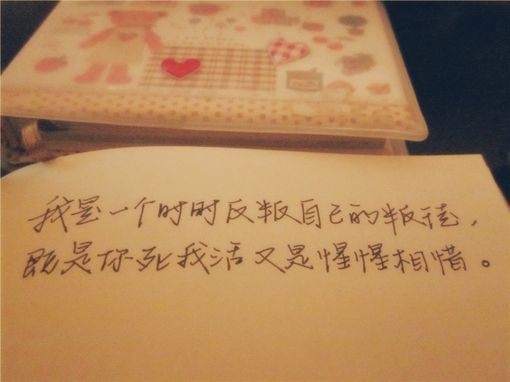 我是一个时时反叛自己的叛徒，
既是你死我活又是惺惺相惜。